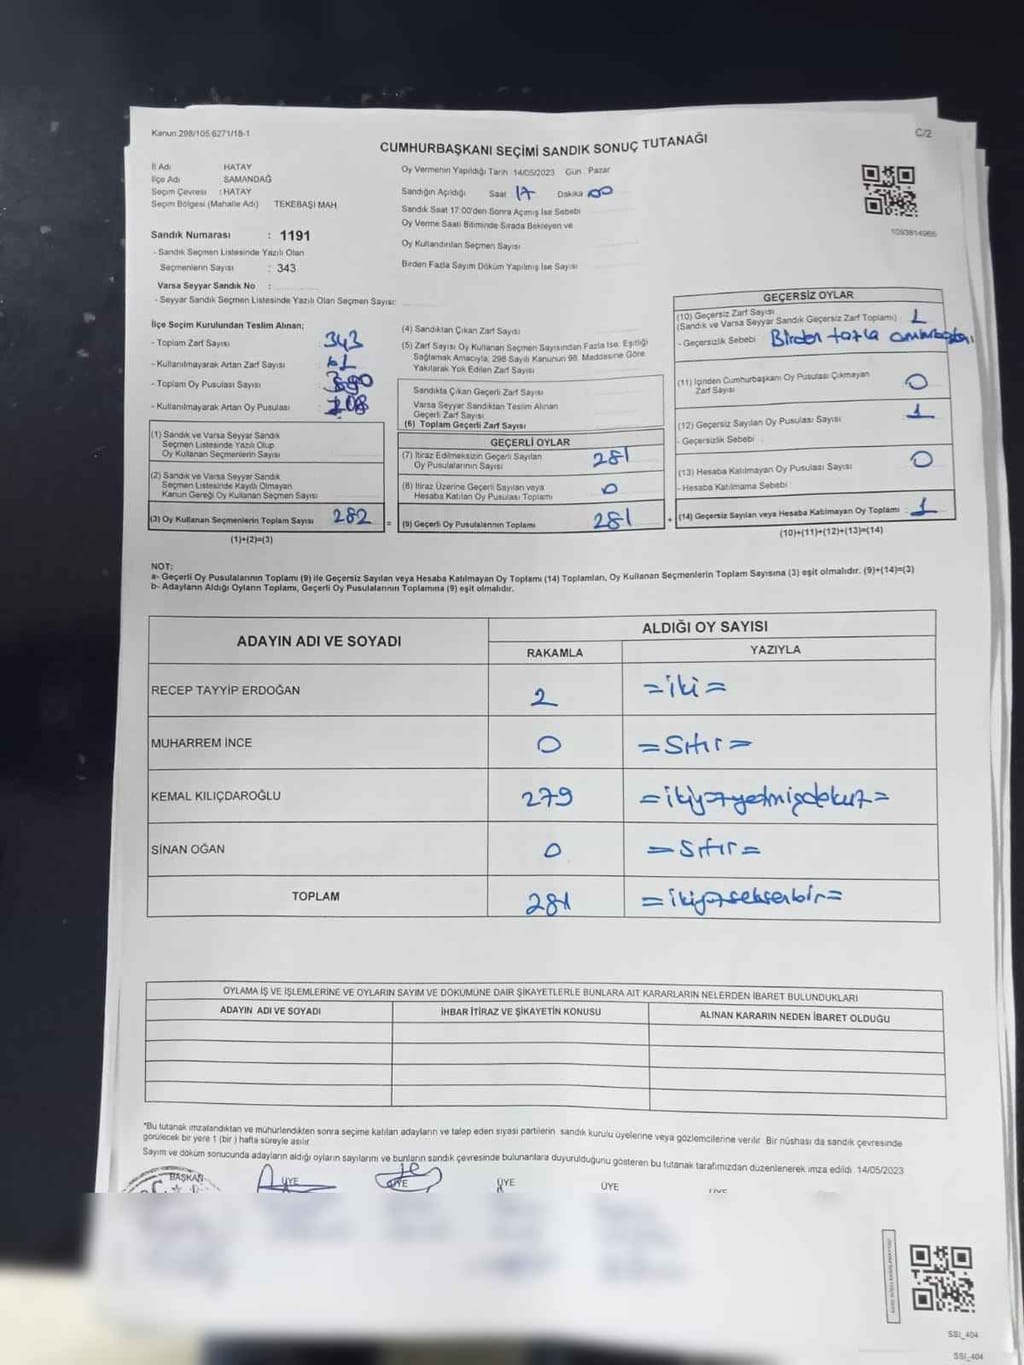 Kanun.298/105.6271/18-1
C/2
CUMHURBAŞKANI SEÇİMİ SANDIK SONUÇ TUTANAĞI
İl Adı HATAY
İlçe Adı SAMANDAĞ
Seçim Çevresi : HATAY
Seçim Bölgesi (Mahalle Adı) TEKEBAŞI MAH
Sandık Numarası : 1191
- Sandık Seçmen Listesinde Yazılı Olan
Seçmenlerin Sayısı : 343
Varsa Seyyar Sandık No :
- Seyyar Sandık Seçmen Listesinde Yazılı Olan Seçmen Sayısı:
Oy Vermenin Yapıldığı Tarih 14/05/2023 Gün Pazar
Sandığın Açıldığı Saat 17 Dakika 00
Sandık Saat 17:00'den Sonra Açımış İse Sebebi
Oy Verme Saati Bitiminde Sırada Bekleyen ve
Oy Kullandırılan Seçmen Sayısı
Birden Fazla Sayım Döküm Yapılmış İse Sayısı
1093814965
İlçe Seçim Kurulundan Teslim Alınan;
- Toplam Zarf Sayısı 343
- Kullanılmayarak Artan Zarf Sayısı 61
- Toplam Oy Pusulası Sayısı
- Kullanılmayarak Artan Oy Pusulası 108
(1) Sandık ve Varsa Seyyar Sandık
Seçmen Listesinde Yazılı Olup
Oy Kullanan Seçmenlerin Sayısı
(2) Sandık ve Varsa Seyyar Sandık
Seçmen Listesinde Kayıtlı Olmayan
Kanun Gereği Oy Kullanan Seçmen Sayısı
(3) Oy Kullanan Seçmenlerin Toplam Sayısı 282 =
(1)+(2)=(3)
(4) Sandıktan Çıkan Zarf Sayısı
(5) Zarf Sayısı Oy Kullanan Seçmen Sayısından Fazla İse, Eşitliği
Sağlamak Amacıyla; 298 Sayılı Kanunun 98. Maddesine Göre
Yakılarak Yok Edilen Zarf Sayısı
Sandıkta Çıkan Geçerli Zarf Sayısı
Varsa Seyyar Sandıktan Teslim Alınan
Geçerli Zarf Sayısı
(6) Toplam Geçerli Zarf Sayısı
GEÇERLİ OYLAR
(7) İtiraz Edilmeksizin Geçerli Sayılan
Oy Pusulalarının Sayısı 281
(8) İtiraz Üzerine Geçerli Sayılan veya
Hesaba Katılan Oy Pusulası Toplamı 0
(9) Geçerli Oy Pusulalarının Toplamı 281 +
GEÇERSİZ OYLAR
(10) Geçersiz Zarf Sayısı
(Sandık ve Varsa Seyyar Sandık Geçersiz Zarf Toplamı) 1
- Geçersizlik Sebebi Birden fazla
(11) İçinden Cumhurbaşkanı Oy Pusulası Çıkmayan
Zarf Sayısı 0
(12) Geçersiz Sayılan Oy Pusulası Sayısı 1
- Geçersizlik Sebebi
(13) Hesaba Katılmayan Oy Pusulası Sayısı 0
- Hesaba Katılmama Sebebi
(14) Geçersiz Sayılan veya Hesaba Katılmayan Oy Toplamı 1
(10)+(11)+(12)+(13)=(14)
NOT:
a- Geçerli Oy Pusulalarının Toplamı (9) ile Geçersiz Sayılan veya Hesaba Katılmayan Oy Toplamı (14) Toplamları, Oy Kullanan Seçmenlerin Toplam Sayısına (3) eşit olmalıdır. (9)+(14)=(3)
b- Adayların Aldığı Oyların Toplamı, Geçerli Oy Pusulalarının Toplamına (9) eşit olmalıdır.
ADAYIN ADI VE SOYADI
ALDIĞI OY SAYISI
RAKAMLA YAZIYLA
RECEP TAYYİP ERDOĞAN 2 =iki=
MUHARREM İNCE 0 =Sıfır=
KEMAL KILIÇDAROĞLU 279 =ikiyüzyetmişdokuz=
SİNAN OĞAN 0 =Sıfır=
TOPLAM 281 =ikiyüzseksenbir=
OYLAMA İŞ VE İŞLEMLERİNE VE OYLARIN SAYIM VE DÖKÜMÜNE DAİR ŞİKAYETLERLE BUNLARA AİT KARARLARIN NELERDEN İBARET BULUNDUKLARI
ADAYIN ADI VE SOYADI İHBAR İTİRAZ VE ŞİKAYETİN KONUSU ALINAN KARARIN NEDEN İBARET OLDUĞU
*Bu tutanak imzalandıktan ve mühürlendikten sonra seçime katılan adayların ve talep eden siyasi partilerin sandık kurulu üyelerine veya gözlemcilerine verilir. Bir nüshası da sandık çevresinde
görülecek bir yere 1 (bir ) hafta süreyle asılır
Sayım ve döküm sonucunda adayların aldığı oyların sayılarını ve bunların sandık çevresinde bulunanlara duyurulduğunu gösteren bu tutanak tarafımızdan düzenlenerek imza edildi. 14/05/2023
BAŞKAN ÜYE ÜYE ÜYE ÜYE ÜYE
SSI_404
SSI_404